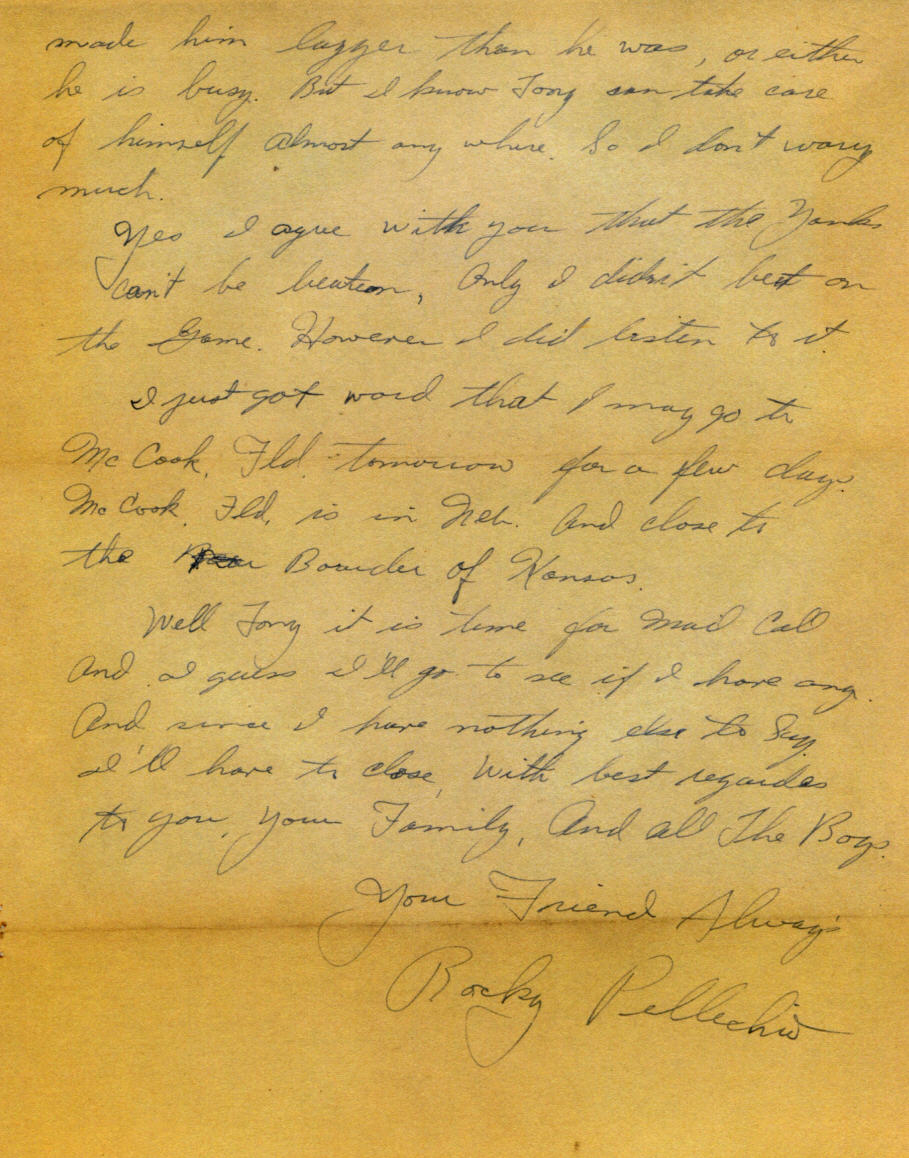 made him lazzer than he was, or either
he is busy. But I know Tony can take care
of himself almost any where. So I don't worry
much.
Yes I agree with you that the Yanks
can't be beaten, Only I didn't bet on
the Game. However I did listen to it.
I just got word that I may go to
Mc Cook, Fld. tomorrow for a few days.
Mc Cook, Fld, is in Neb. And close to
the Bourder of Kansas.
Well Tony it is time for Mail Call
And I guess I'll go to see if I have any.
And since I have nothing else to Say,
I'll have to close, With best regardes
to you, your Family, And all The Boys.
Your Friend Always
Rocky Pellechio